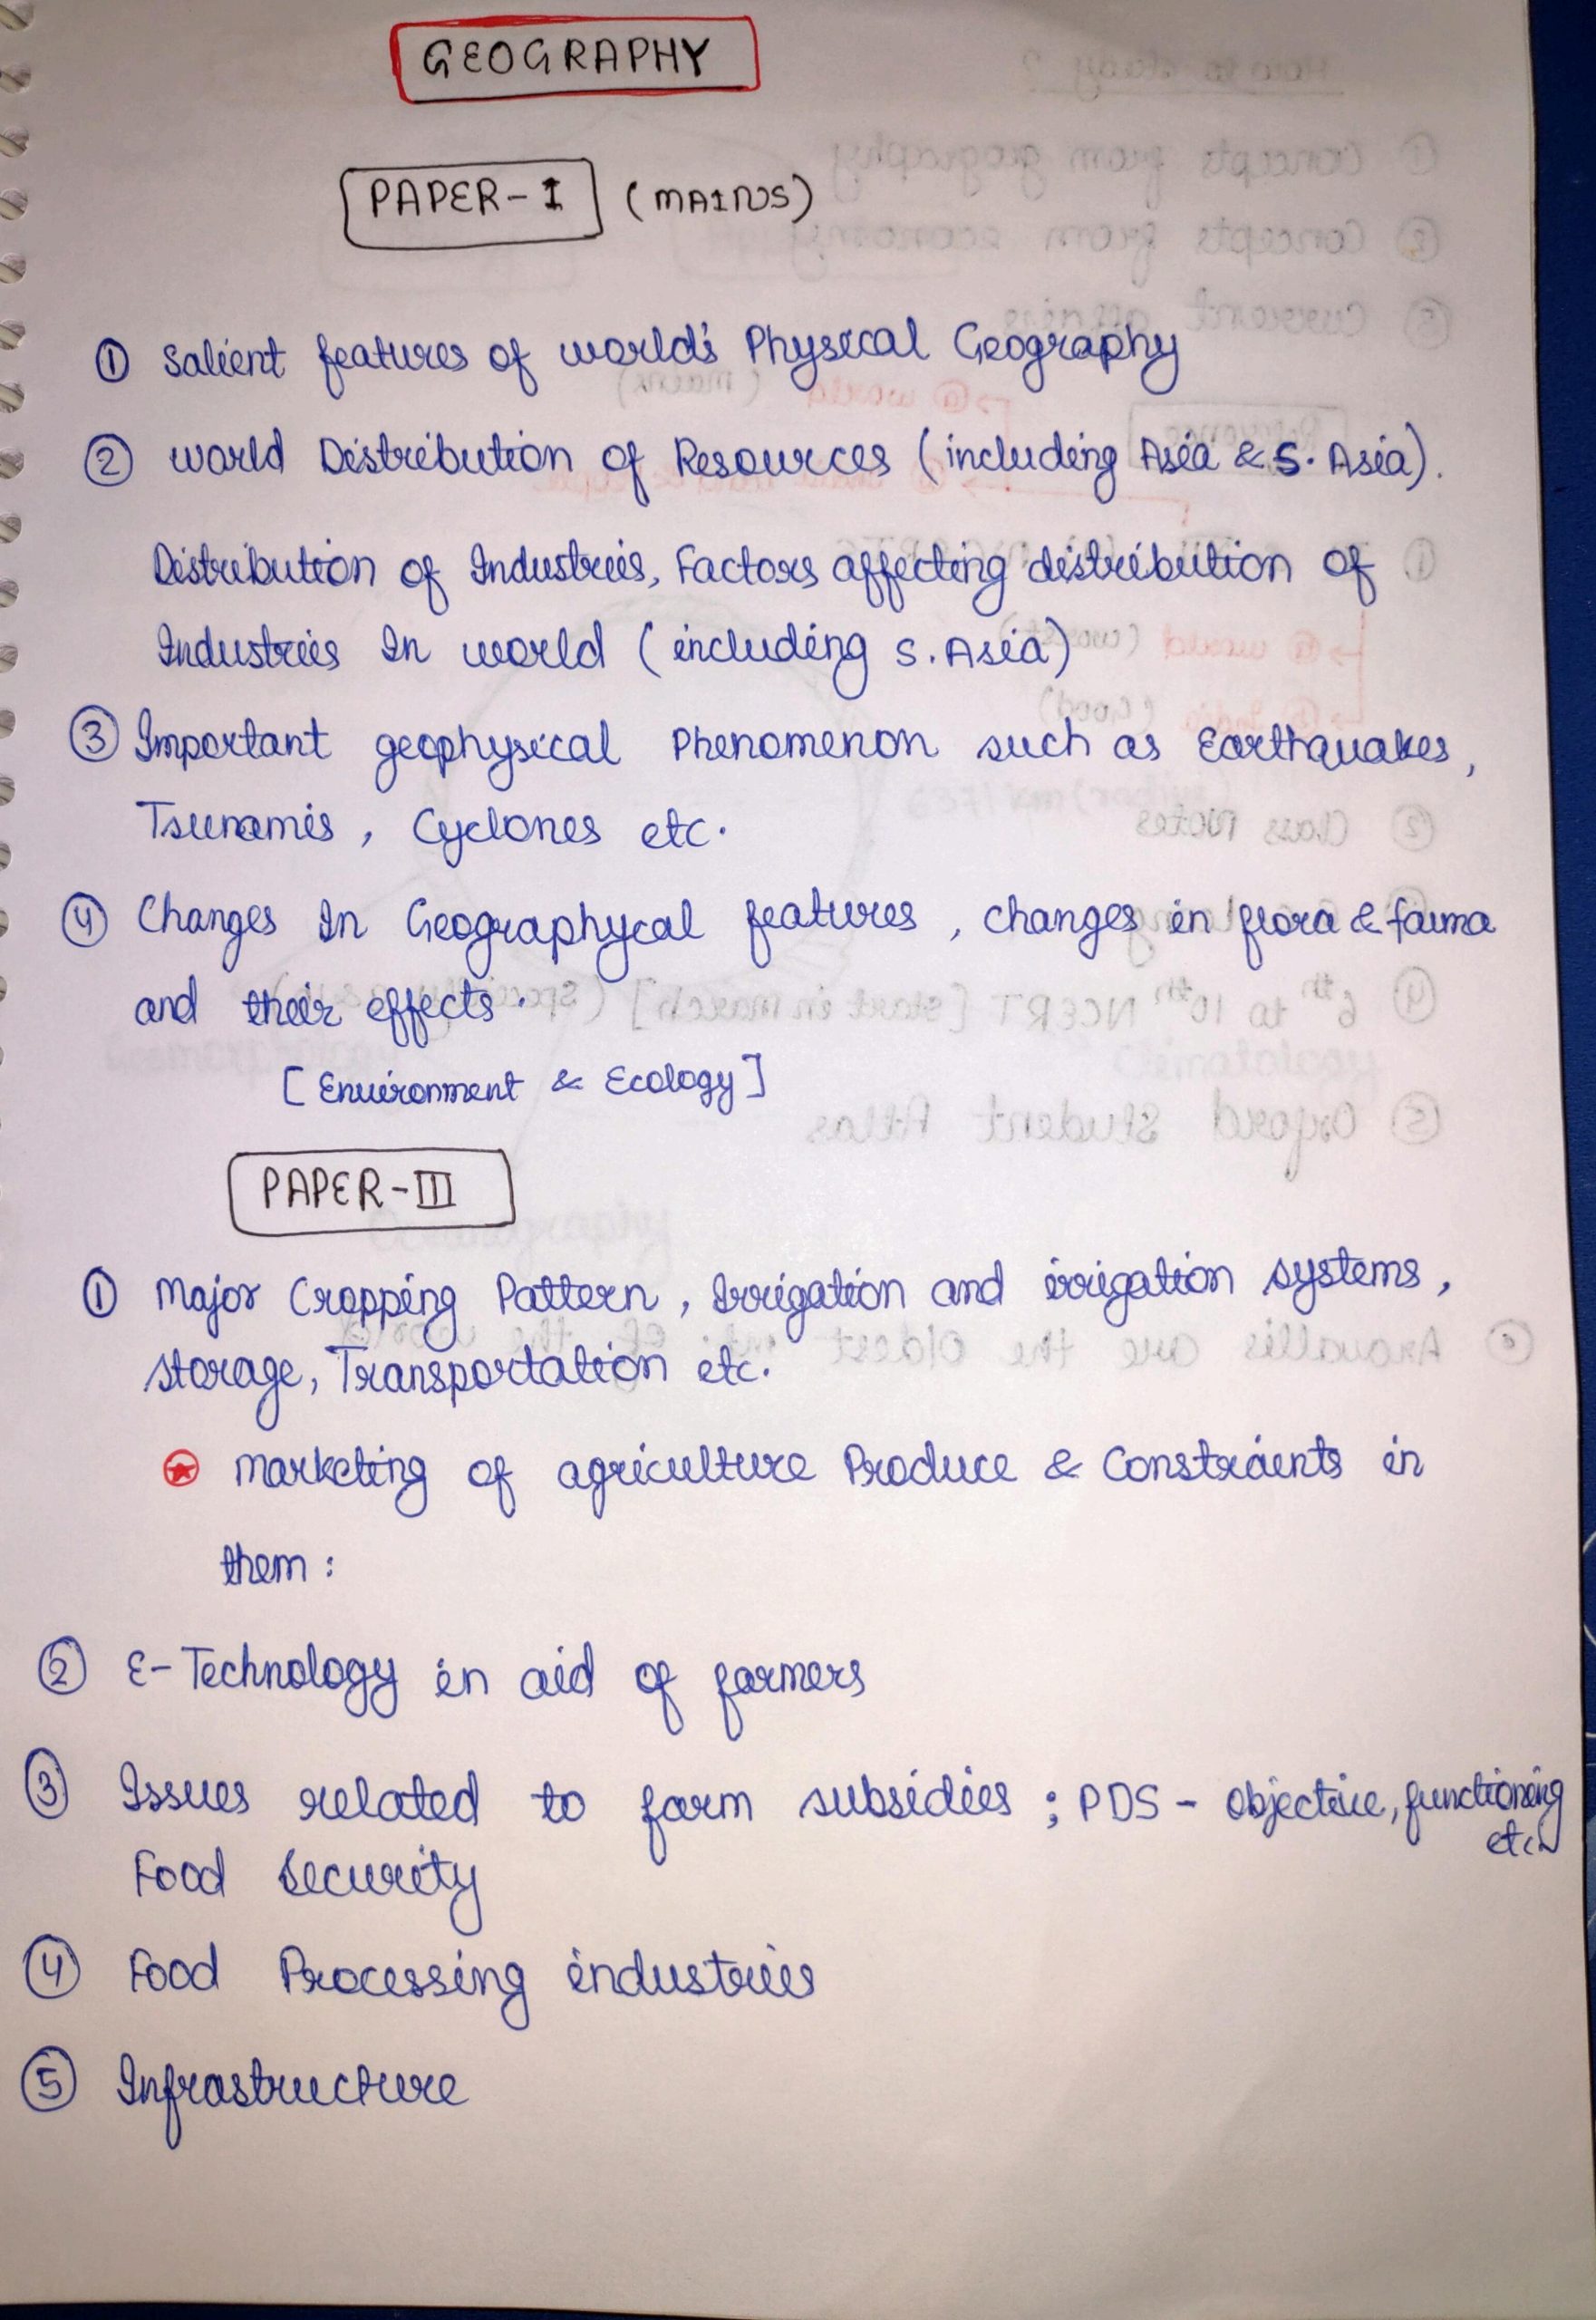 GEOGRAPHY
PAPER-I (MAINS)
① Salient features of world's Physical Geography
② World Distribution of Resources (including Asia & S. Asia).
Distribution of Industries, Factors affecting distribution of
Industries In world (including S. Asia)
③ Important geophysical Phenomenon such as Earthquakes,
Tsunamis, Cyclones etc.
④ Changes In Geographycal features, changes in flora & fauna
and their effects.
[Environment & Ecology]
PAPER-III
① Major Cropping Pattern, Irrigation and irrigation systems,
storage, Transportation etc.
★ Marketing of agriculture Produce & Constraints in
them:
② E-Technology in aid of farmers
③ Issues related to farm subsidies; PDS - Objective, functioning
etc.
Food Security
④ Food Processing industries
⑤ Infrastructure